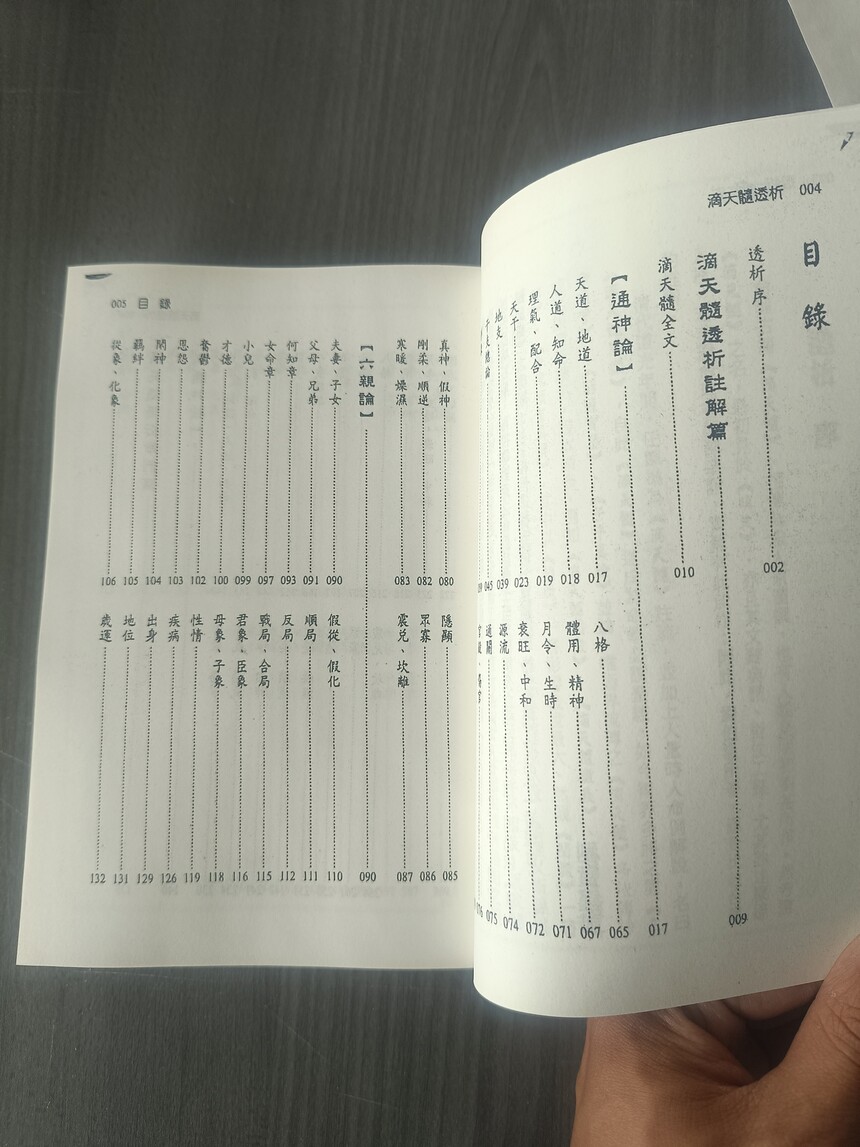 滴天髓透析 004
目錄
透析序 002
滴天髓透析註解篇 009
滴天髓全文 010
【通神論】 017
天道、地道 017
人道、知命 018
理氣、配合 019
天干 023
地支 039
干支總論 045
八格 065
體用、精神 067
月令、生時 071
衰旺、中和 072
源流 074
通關 075
076
005 目錄
真神、假神 080
剛柔、順逆 082
寒暖、燥濕 083
隱顯 085
眾寡 086
震兌、坎離 087
【六親論】 090
夫妻、子女 090
父母、兄弟 091
何知章 093
女命章 097
小兒 099
才德 100
奮鬱 102
恩怨 103
閑神 104
羈絆 105
從象、化象 106
假從、假化 110
順局 111
反局 112
戰局、合局 115
君象、臣象 116
母象、子象 118
性情 119
疾病 126
出身 129
地位 131
歲運 132